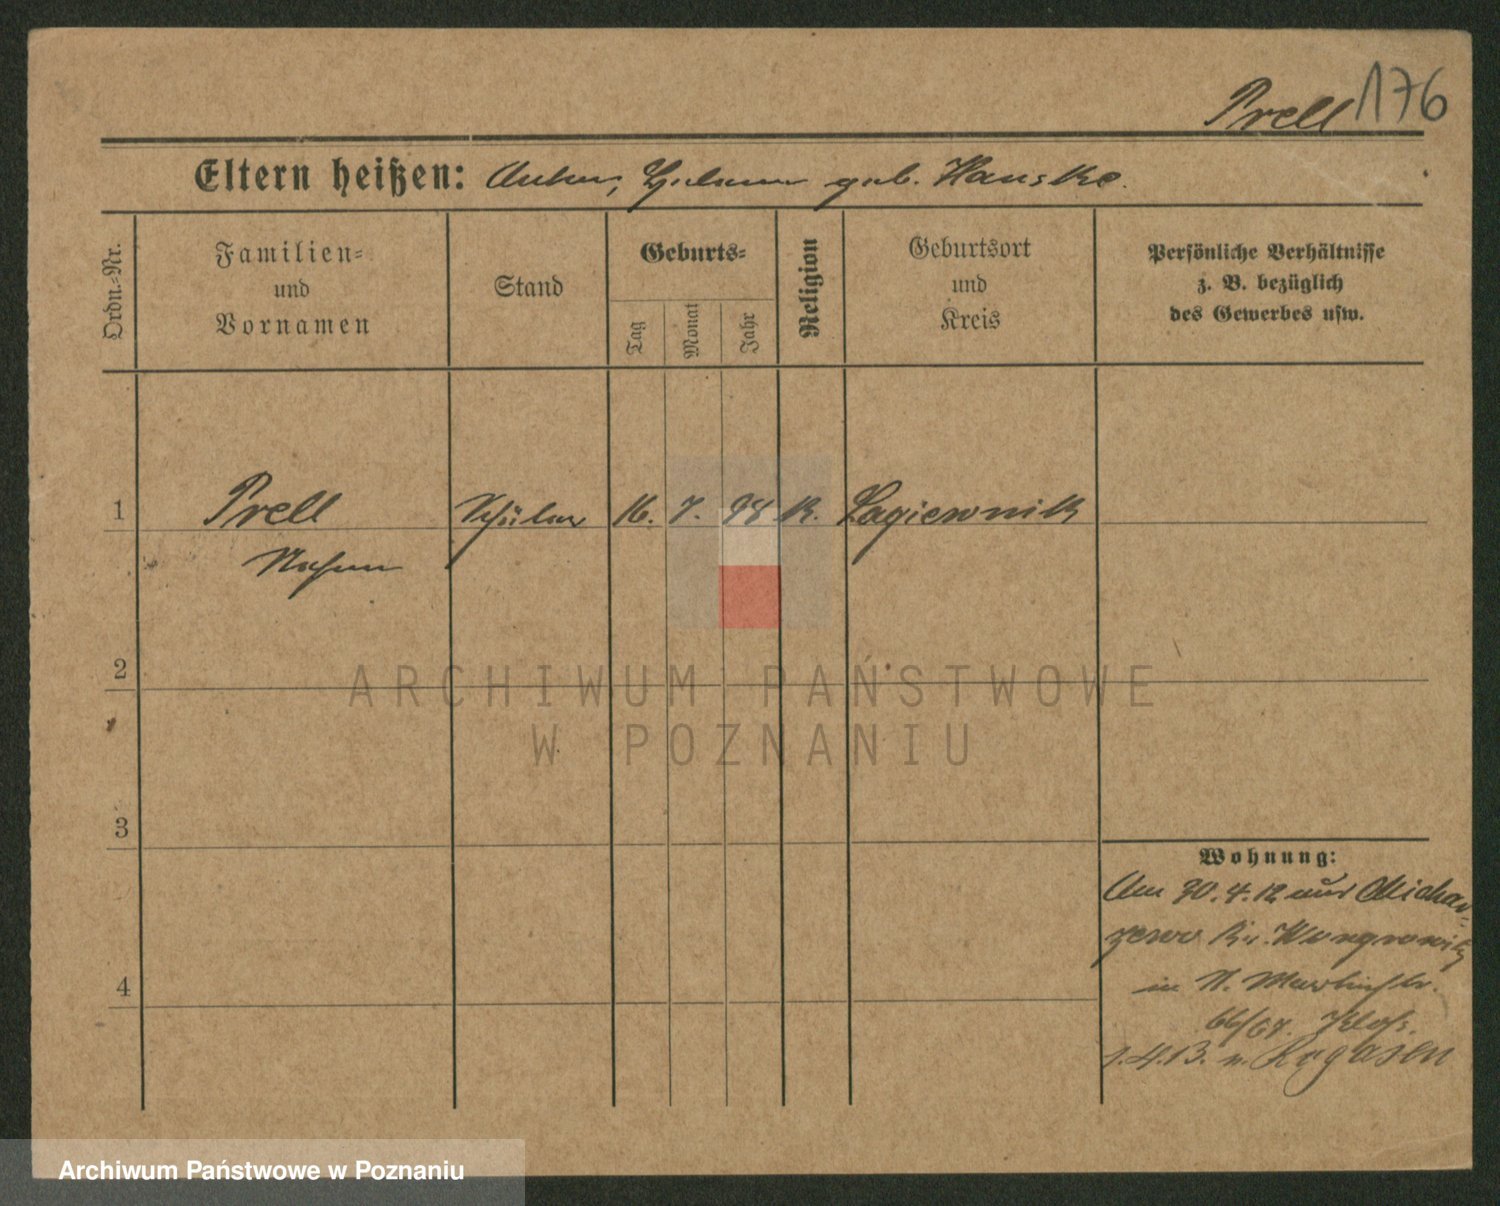 Prell 176
Eltern heißen: Anton, geb. Hauske.
Ordn.-Nr.
Familien-
und
Vornamen
Stand
Geburts-
Tag
Monat
Jahr
Religion
Geburtsort
und
Kreis
Persönliche Verhältnisse
z. B. bezüglich
des Gewerbes usw.
1 Prell Schüler 16. 7. 98 K. Lagiewnik
2
3
4
Wohnung:
Am 30.4.12 aus Michar-
zewo Kr. Wongrowitz
in St. Martinstr.
66/67.
1.4.13. n. Rogasen
ARCHIWUM PAŃSTWOWE
W POZNANIU
Archiwum Państwowe w Poznaniu